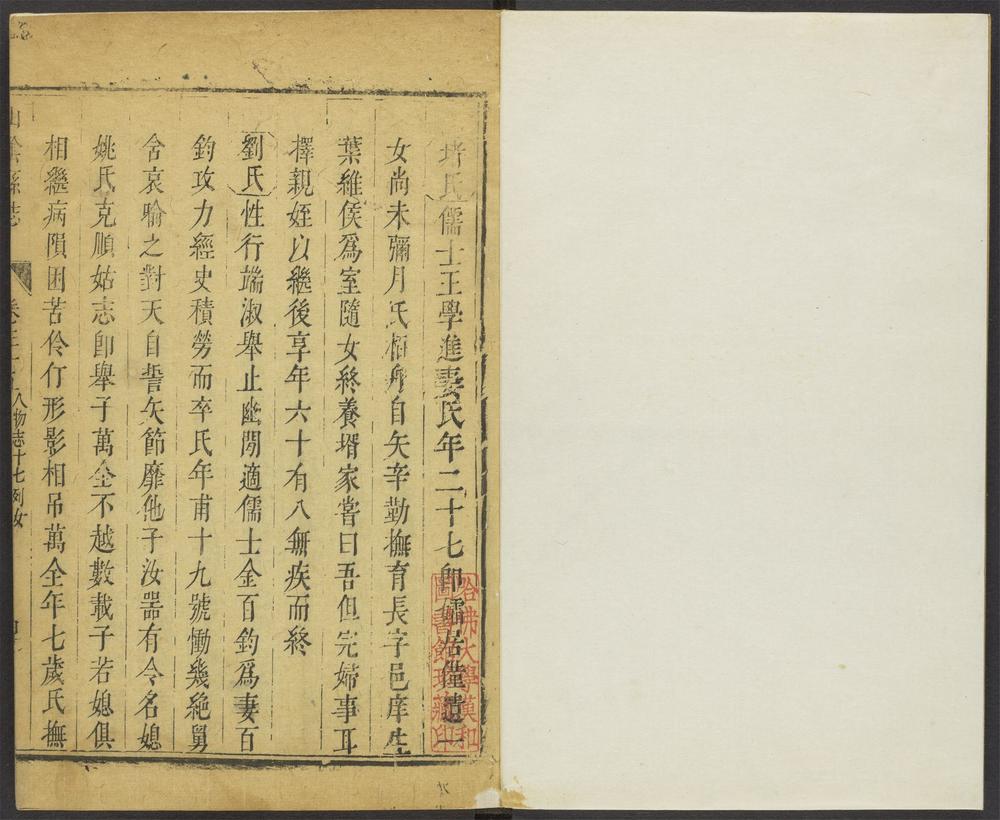 堵氏儒士王學進妻氏年二十七卽孀居僅遺一
女尚未彌月氏栢舟自矢辛勤撫育長字邑庠生
葉維侯爲室隨女終養壻家嘗曰吾但完婦事耳
擇親姪以繼後享年六十有八無疾而終
劉氏性行端淑舉止幽閒適儒士金百鈞爲妻百
鈞攻力經史積勞而卒氏年甫十九號慟幾絶舅
含哀喻之對天自誓矢節靡他子汝器有令名媳
姚氏克順姑志卽舉子萬全不越數載子若媳俱
相繼病隕困苦伶仃形影相吊萬全年七歲氏撫
山陰縣志 卷三十 人物志十七列女
哈佛大學漢和
圖書館珍藏印